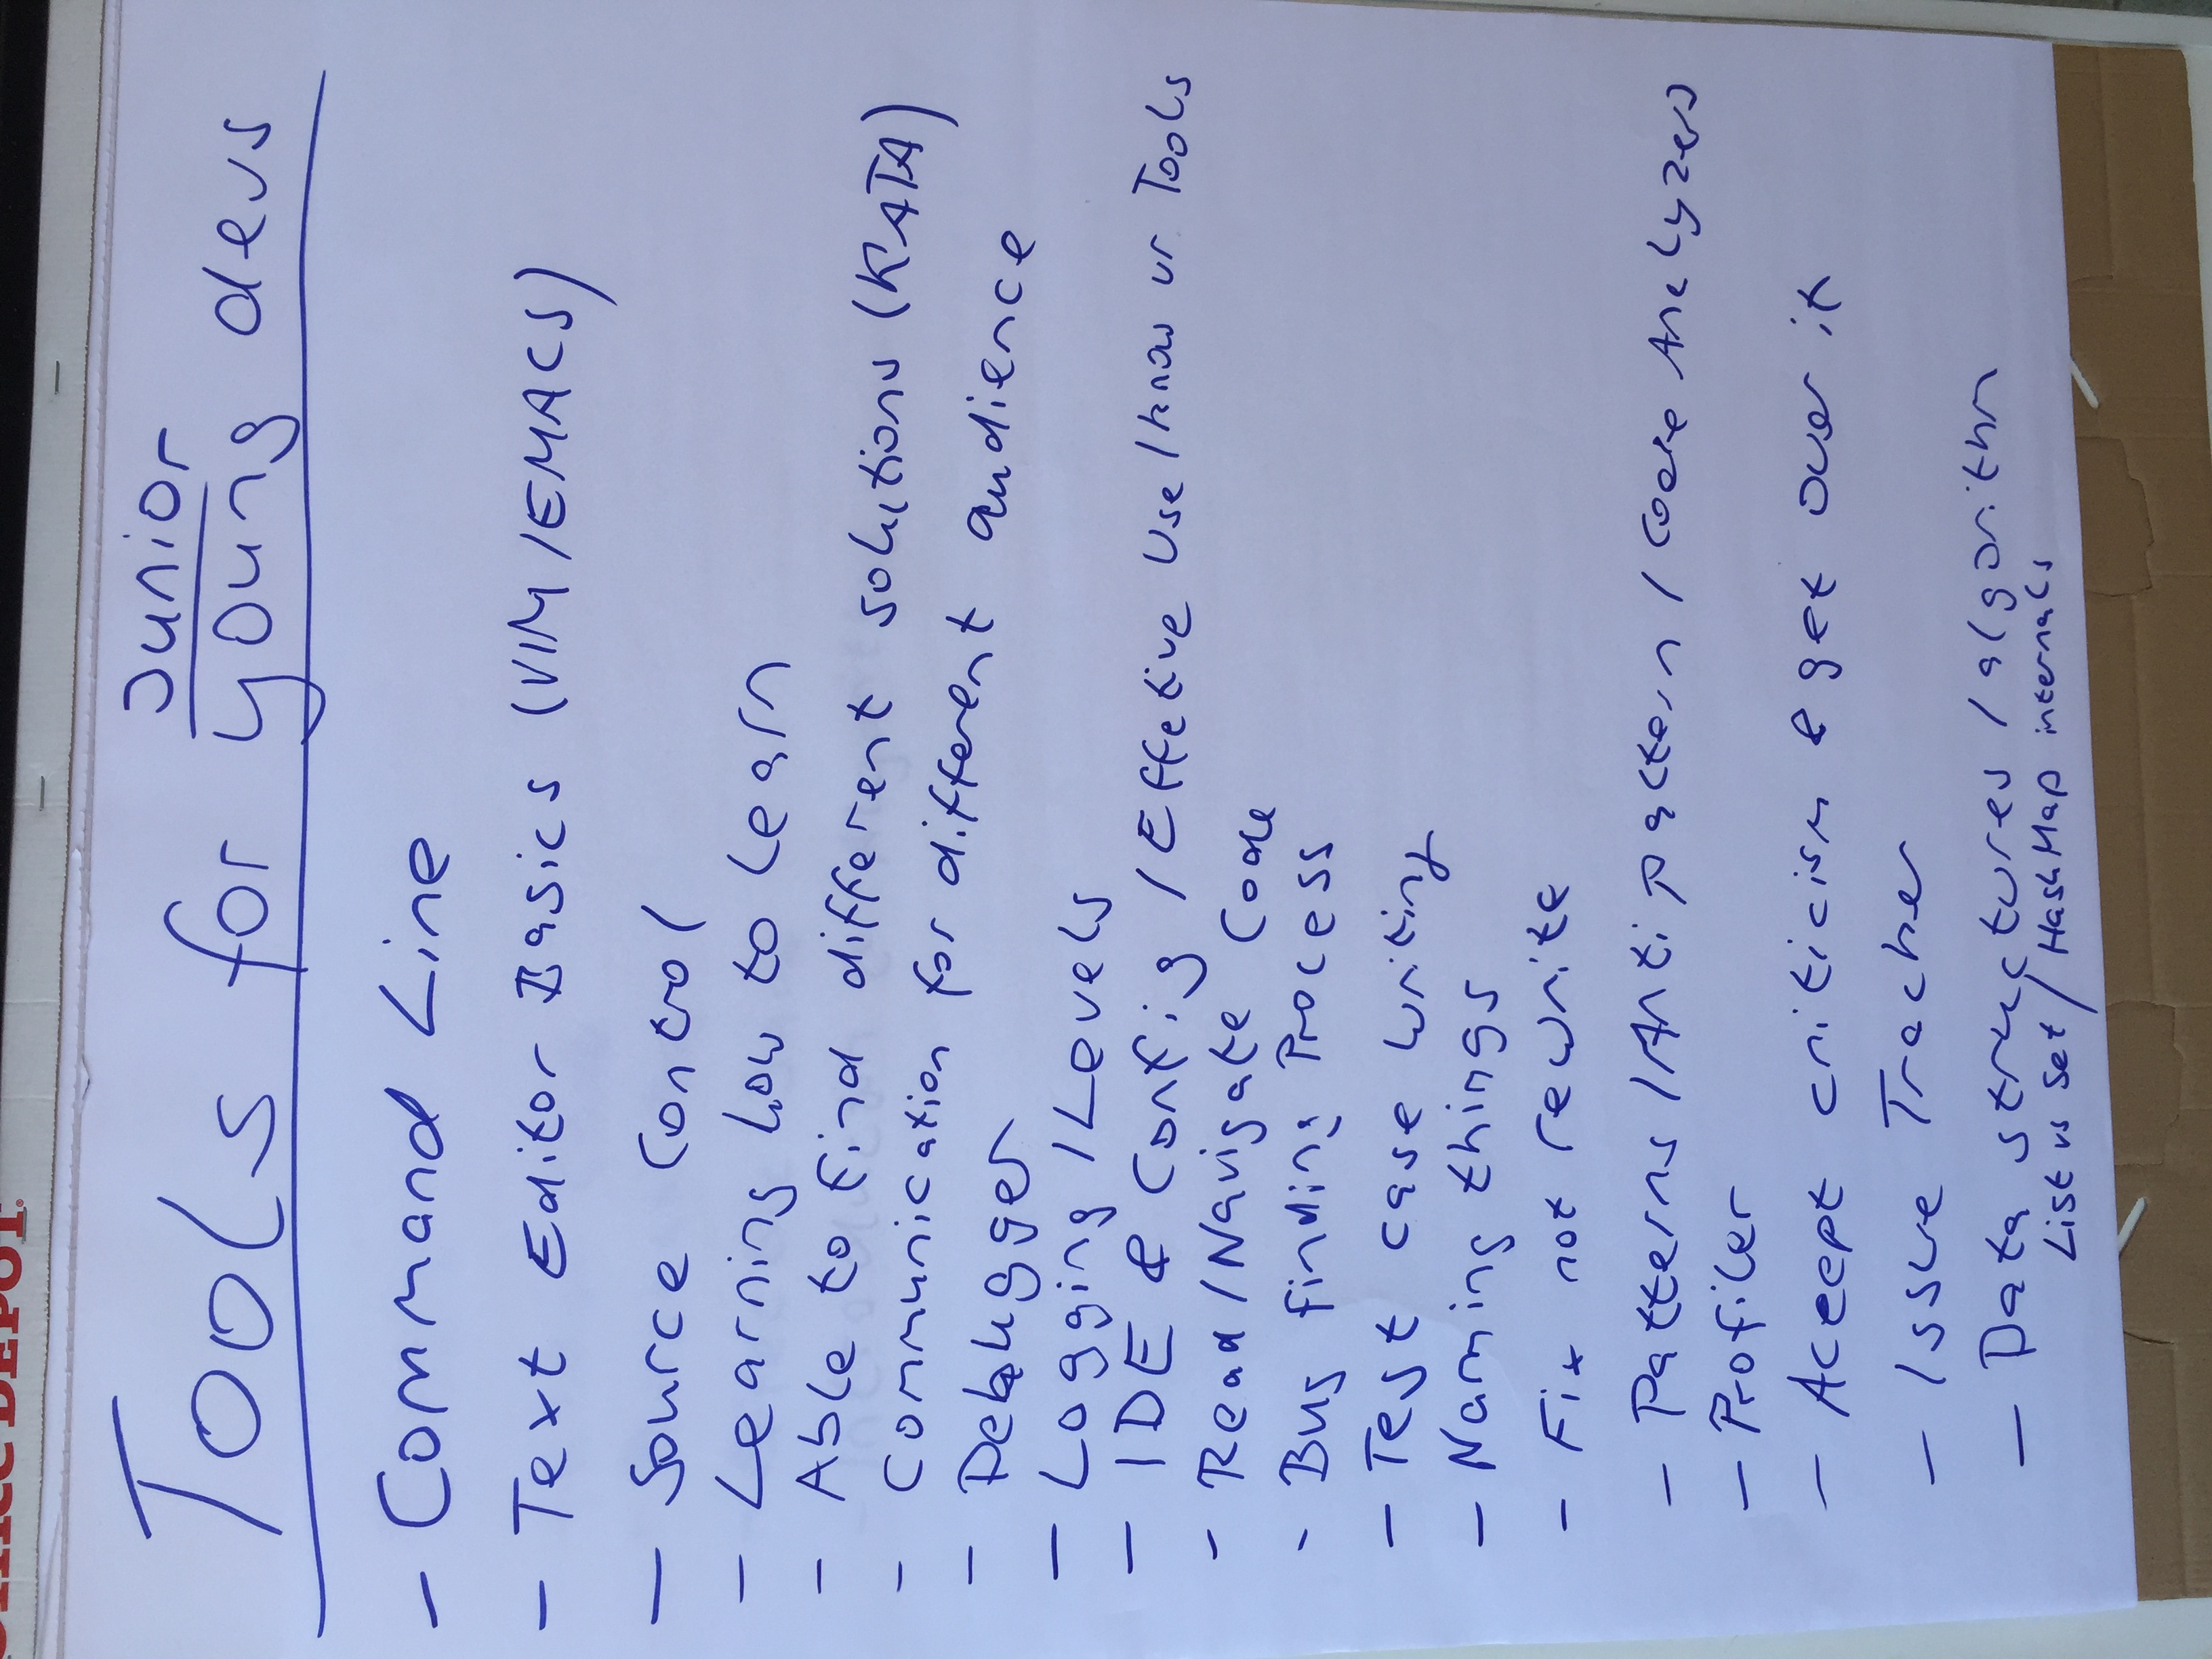 OFFICE DEPOT.
Junior
Tools for young devs
- Command Line
- Text Editor Basics (VIM/EMACS)
- Source Control
- Learning how to learn
- Able to find different solutions (KATA)
- Communication for different audience
- Debugger
- Logging / Levels
- IDE & Config / Effetive Use / know ur Tools
- Read / Navigate Code
- Bug finding Process
- Test case writing
- Naming things
- Fix not rewrite
- Patterns / Anti pattern / Code Analyzers
- Profiler
- Accept criticism & get over it
- Issue Tracker
- Data structures / algorithm
List vs Set / HashMap internals